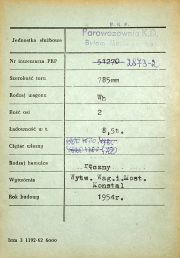 P. K. P.
Jednostka służbowa
Parowozownia K.D.
Nr inwentarza PKP 51270 2873-2
Szerokość toru 785mm
Rodzaj wagonu Wh
Ilość osi 2
Ładowność w t. 8,5t.
Ciężar własny
Rodzaj hamulca ręczny
Wytwórnia Wytw. Wag.i.Most. Konstal
Rok budowy 1954r.